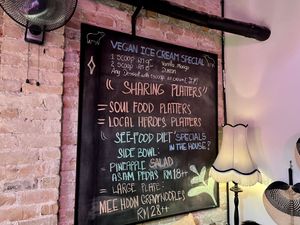 VEGAN ICE CREAM SPECIAL
1 SCOOP RM 9
2 SCOOP RM
Vanilla Mango
Durian
Any Dessert with scoop
"SHARING PLATTERS"
= SOUL FOOD PLATTERS
= LOCAL HEROES PLATTERS
"SEE-FOOD DIET" SPECIALS
IN THE HOUSE?
SIDE BOWL:
= PINEAPPLE SALAD
ASAM PEDAS RM 18++
= LARGE PLATE:
MEE HOON GRAM NOODLES
RM 28++